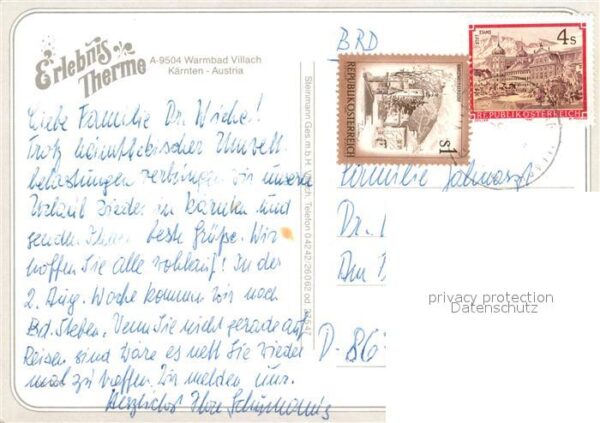 Erlebnis
Therme
A-9504 Warmbad Villach
Kärnten - Austria
Liebe Familie Dr. Wiche!
Trotz heimtückischer Umwelt-
belastungen verbringen wir unseren
Urlaub wieder in Kärnten und
senden Ihnen beste Grüße. Wir
hoffen Sie alle wohlauf! In der
2. Aug. Woche kommen wir nach
Bd. Steben. Wenn Sie nicht gerade auf
Reisen sind wäre es nett Sie wieder
mal zu treffen. Wir melden uns.
Herzlichst Ihre
Steinmann Ges.m.b.H. Telefon 0 42 42-26062 od.
BRD
REPUBLIK ÖSTERREICH
S1
4s
STIFT STAMS
REPUBLIK ÖSTERREICH
Familie Zahnarzt
Dr.
Am
D-86
privacy protection
Datenschutz